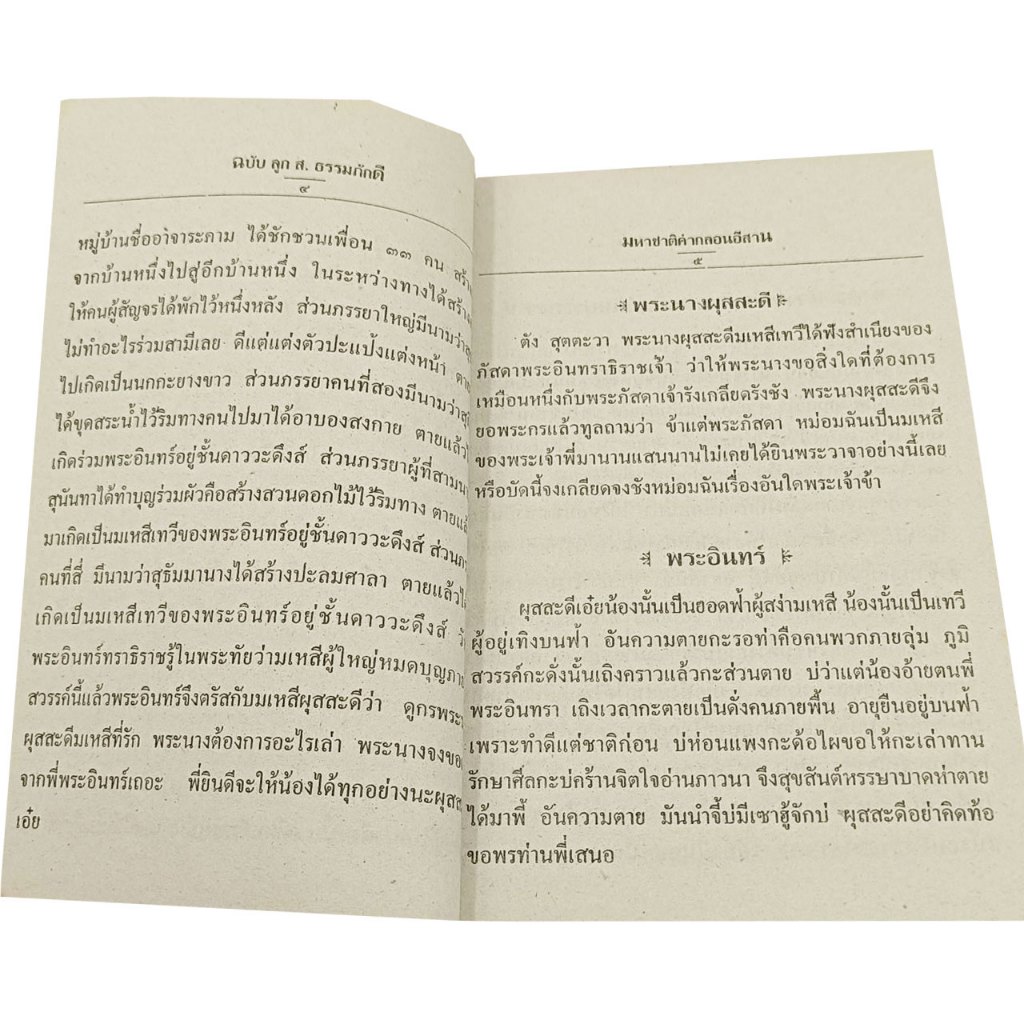 ฉบับ ลูก ส. ธรรมภักดี
๔
หมู่บ้านชื่ออาจาระคาม ได้ชักชวนเพื่อน ๓๓ คน สร้า
จากบ้านหนึ่งไปสู่อีกบ้านหนึ่ง ในระหว่างทางได้สร้าง
ให้คนผู้สัญจรได้พักไว้หนึ่งหลัง ส่วนภรรยาใหญ่มีนามว่าสุ
ไม่ทำอะไรร่วมสามีเลย ดีแต่แต่งตัวปะแป้งแต่งหน้า ตาย
ไปเกิดเป็นนกกะยางขาว ส่วนภรรยาคนที่สองมีนามว่าสุ
ได้ขุดสระน้ำไว้ริมทางคนไปมาได้อาบองสงกาย ตายแล้ว
เกิดร่วมพระอินทร์อยู่ชั้นดาววะดึงส์ ส่วนภรรยาผู้ที่สามนา
สุนันทาได้ทำบุญร่วมผัวคือสร้างสวนดอกไม้ไว้ริมทาง ตายแล้
มาเกิดเป็นมเหสีเทวีของพระอินทร์อยู่ชั้นดาววะดึงส์ ส่วนภร
คนที่สี่ มีนามว่าสุธัมมานางได้สร้างปะลมศาลา ตายแล้วได้
เกิดเป็นมเหสีเทวีของพระอินทร์อยู่ชั้นดาววะดึงส์
พระอินทร์ทราธิราชรู้ในพระทัยว่ามเหสีผู้ใหญ่หมดบุญภาย
สวรรค์นี้แล้วพระอินทร์จึงตรัสกับมเหสีผุสสะดีว่า ดูกรพระ
ผุสสะดีมเหสีที่รัก พระนางต้องการอะไรเล่า พระนางจงขอ
จากพี่พระอินทร์เถอะ พี่ยินดีจะให้น้องได้ทุกอย่างนะผุสส
เอ๋ย
มหาชาติคำกลอนอีสาน
๕
พระนางผุสสะดี
ตัง สุตตะวา พระนางผุสสะดีมเหสีเทวีได้ฟังสำเนียงของ
ภัสดาพระอินทราธิราชเจ้า ว่าให้พระนางขอสิ่งใดที่ต้องการ
เหมือนหนึ่งกับพระภัสดาเจ้ารังเกลียดรังชัง พระนางผุสสะดีจึง
ยอพระกรแล้วทูลถามว่า ข้าแต่พระภัสดา หม่อมฉันเป็นมเหสี
ของพระเจ้าพี่มานานแสนนานไม่เคยได้ยินพระวาจาอย่างนี้เลย
หรือบัดนี้จงเกลียดจงชังหม่อมฉันเรื่องอันใดพระเจ้าข้า
พระอินทร์
ผุสสะดีเอ๋ยน้องนั้นเป็นฮอดฟ้าผู้สง่ามเหสี น้องนั้นเป็นเทวี
ผู้อยู่เทิงบนฟ้า อันความตายกะรอท่าคือคนพวกภายลุ่ม ภูมิ
สวรรค์กะดั่งนั้นเถิงคราวแล้วกะส่วนตาย บ่ว่าแต่น้องอ้ายตนพี่
พระอินทรา เถิงเวลากะตายเป็นดั่งคนภายพื้น อายุยืนอยู่บนฟ้า
เพราะทำดีแต่ชาติก่อน บ่ห่อนแพงกะด้อไผขอให้กะเล่าทาน
รักษาศีลกะบ่คร้านจิตใจอ่านภาวนา จึงสุขสันต์หรรษาบาดห่าตาย
ได้มาพี้ อันความตาย มันนำจี้บ่มีเซาฮู้จักบ่ ผุสสะดีอย่าคิดท้อ
ขอพรท่านพี่เสนอ